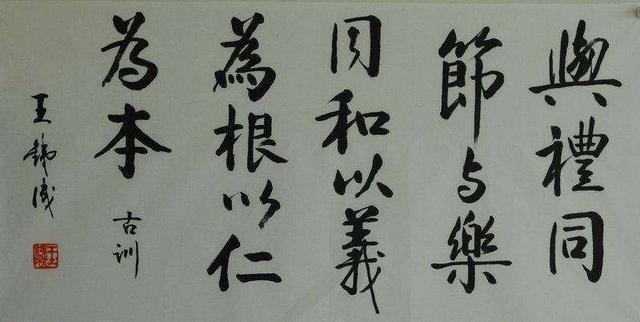 與禮同
節与樂
同和以義
為根以仁
為本
古训
王